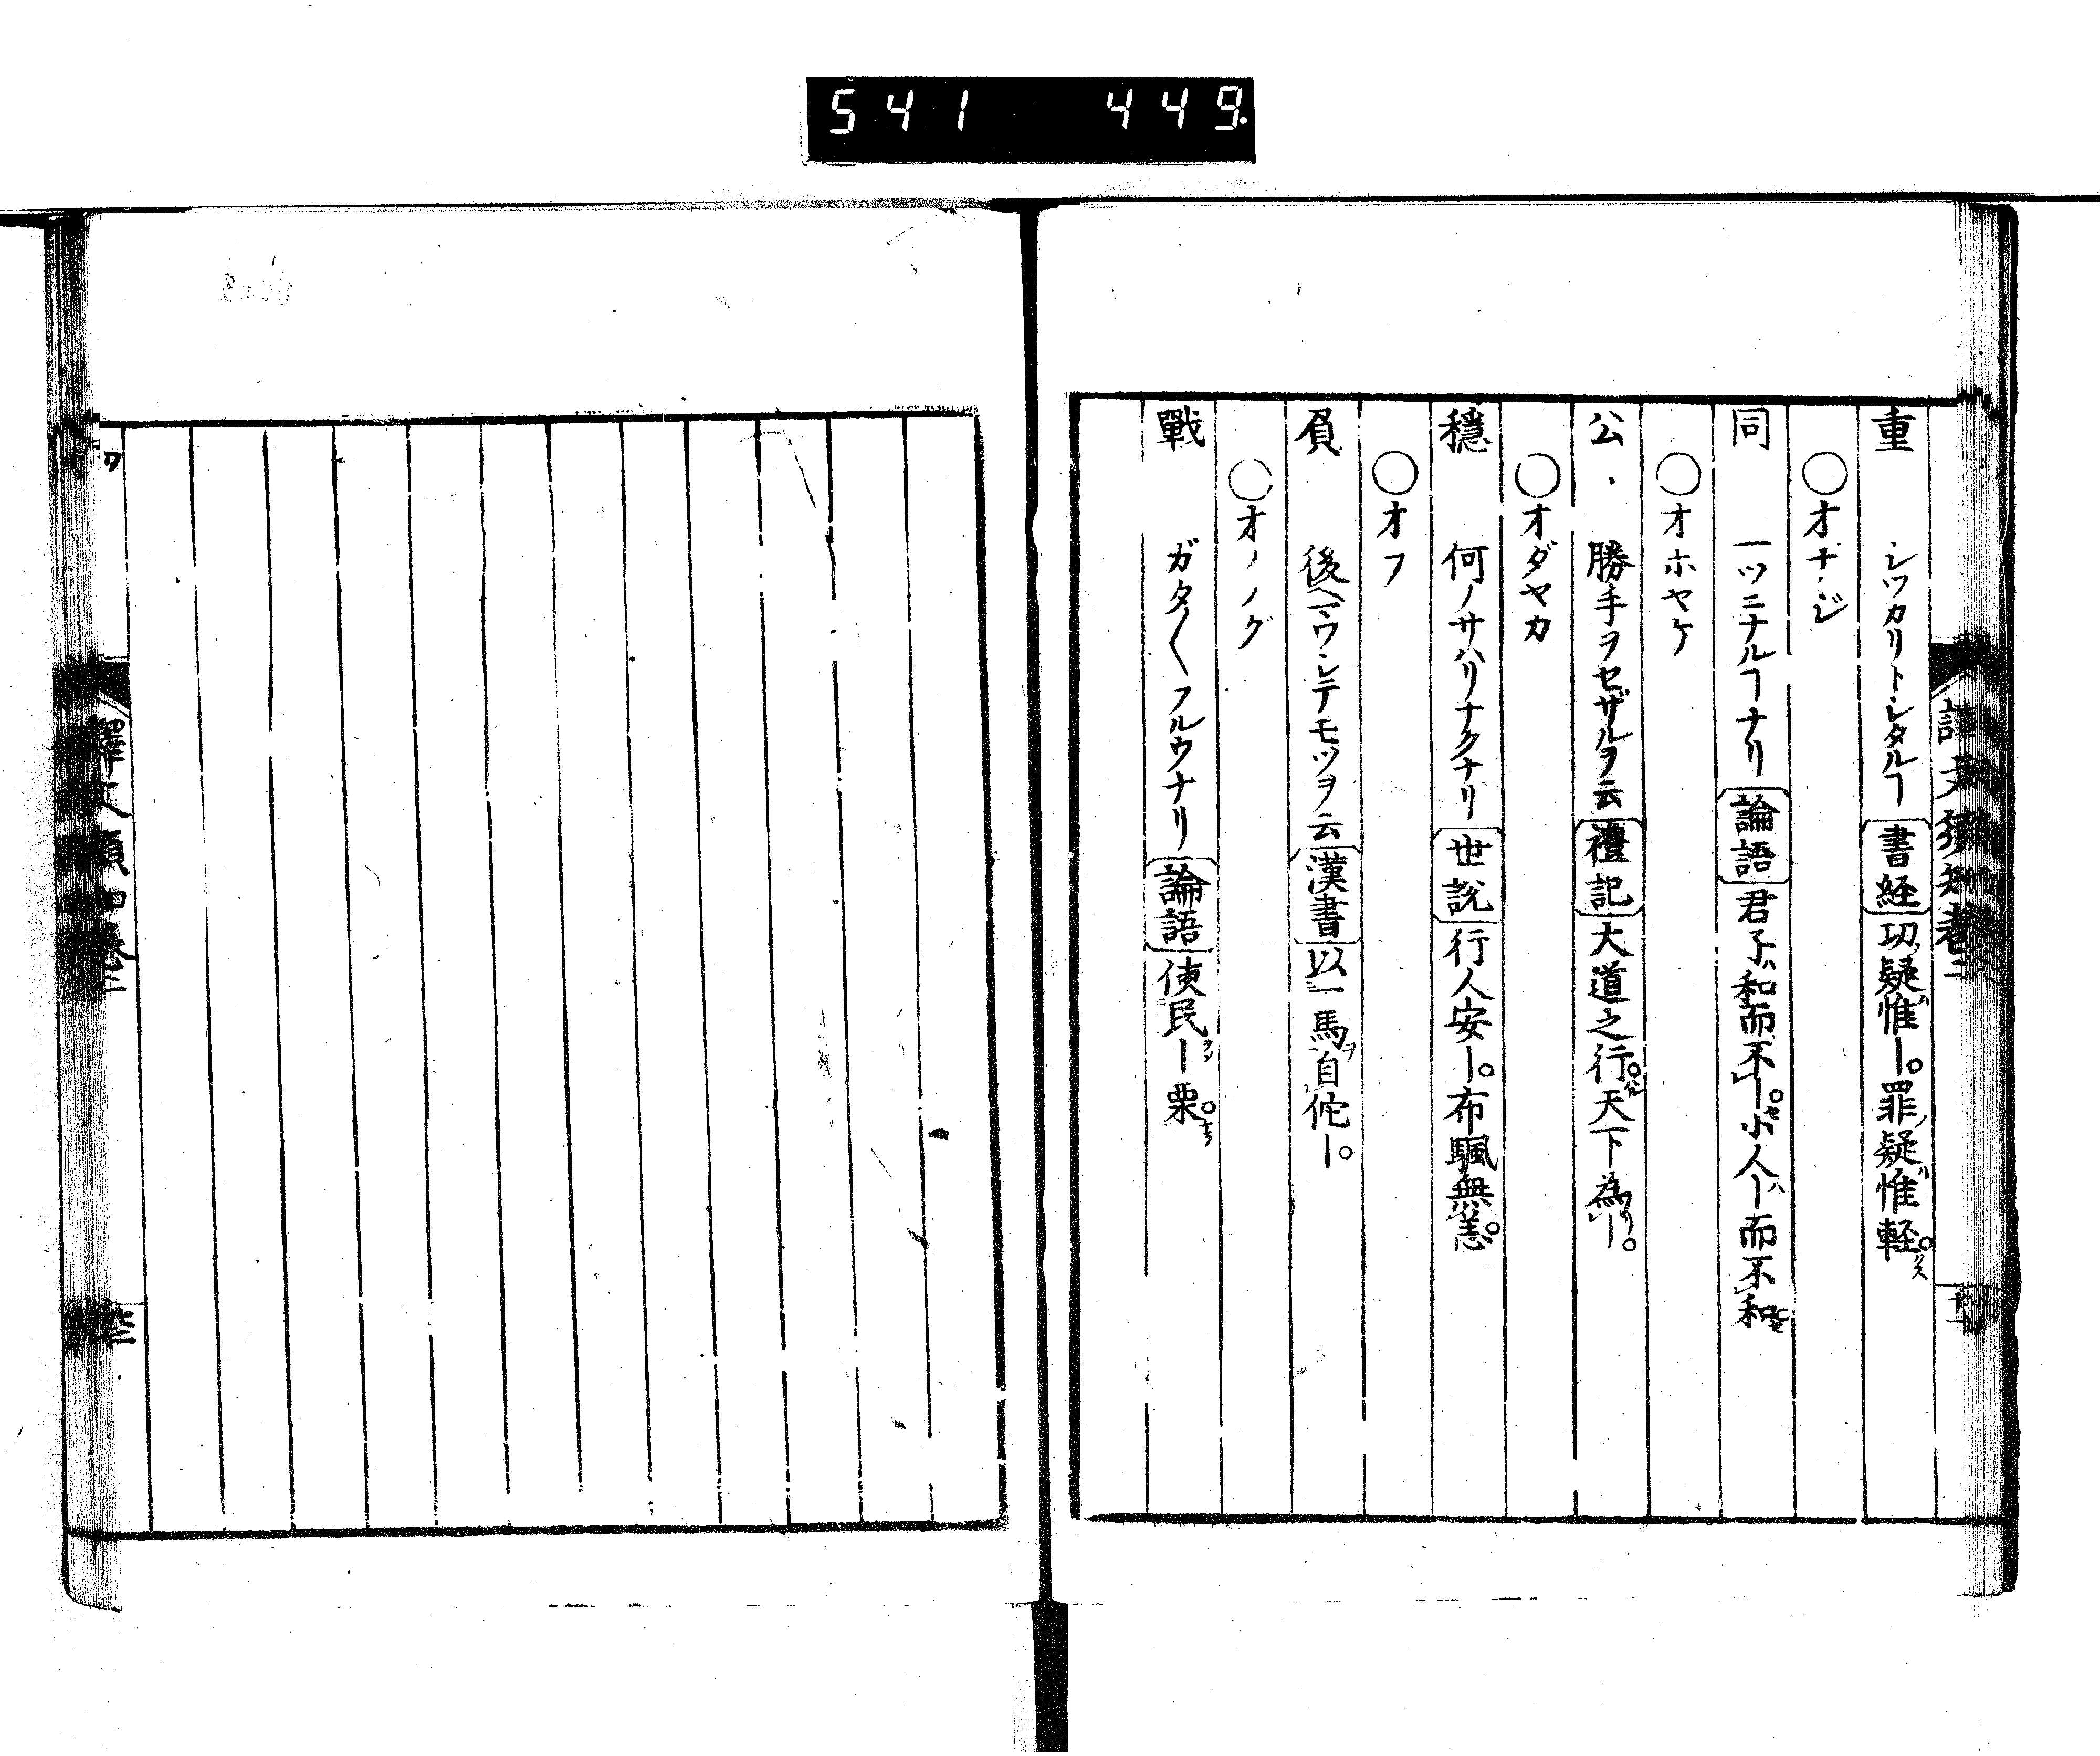 541 449
重 シツカリトシタルヿ書経功ノ疑ハ惟ー。罪ノ疑ハ惟軽。クス
○オナジ
同 一ツニナルヿナリ論語君子ハ和而不ー。セ小人ハー而不和。セ
○オホヤケ
公 勝手ヲセザルヲ云禮記大道之行。天下為ー。
○オダヤカ
穏 何ノサハリナクナリ世説行人安ー。布颿無恙。
○オフ
負 後ヘマワシテモツヲ云漢書以一馬ヲ自佗ー。
○オノノク
戰 ガタ〱フルウナリ論語使民ー栗。
譯文須知巻二